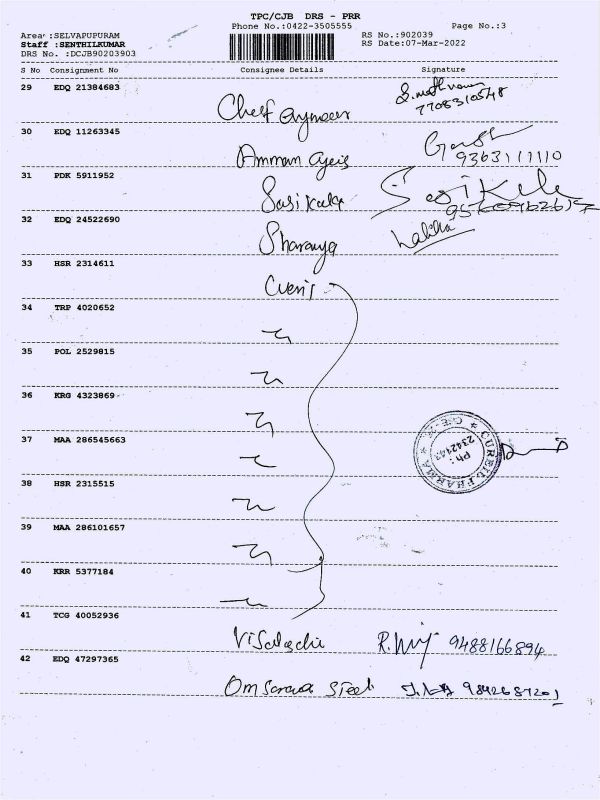 TPC/CJB DRS - PRR
Phone No.:0422-3505555 Page No.:3
Area :SELVAPUPURAM RS No.:902039
Staff :SENTHILKUMAR RS Date:07-Mar-2022
DRS No. :DCJB90203903
S No Consignment No Consignee Details Signature
29 EDQ 21384683
7708310548
30 EDQ 11263345
Amman
9363111110
31 PDK 5911952
Sasikala Sasikala
32 EDQ 24522690
Sharanya Lalitha
33 HSR 2314611
34 TRP 4020652
35 POL 2529815
36 KRG 4323869
37 MAA 286545663
CUREID PHARMA
Ph:
2342143
38 HSR 2315515
39 MAA 286101657
40 KRR 5377184
41 TCG 40052936
Visalachi 9488166894
42 EDQ 47297365
Steel 9842687201